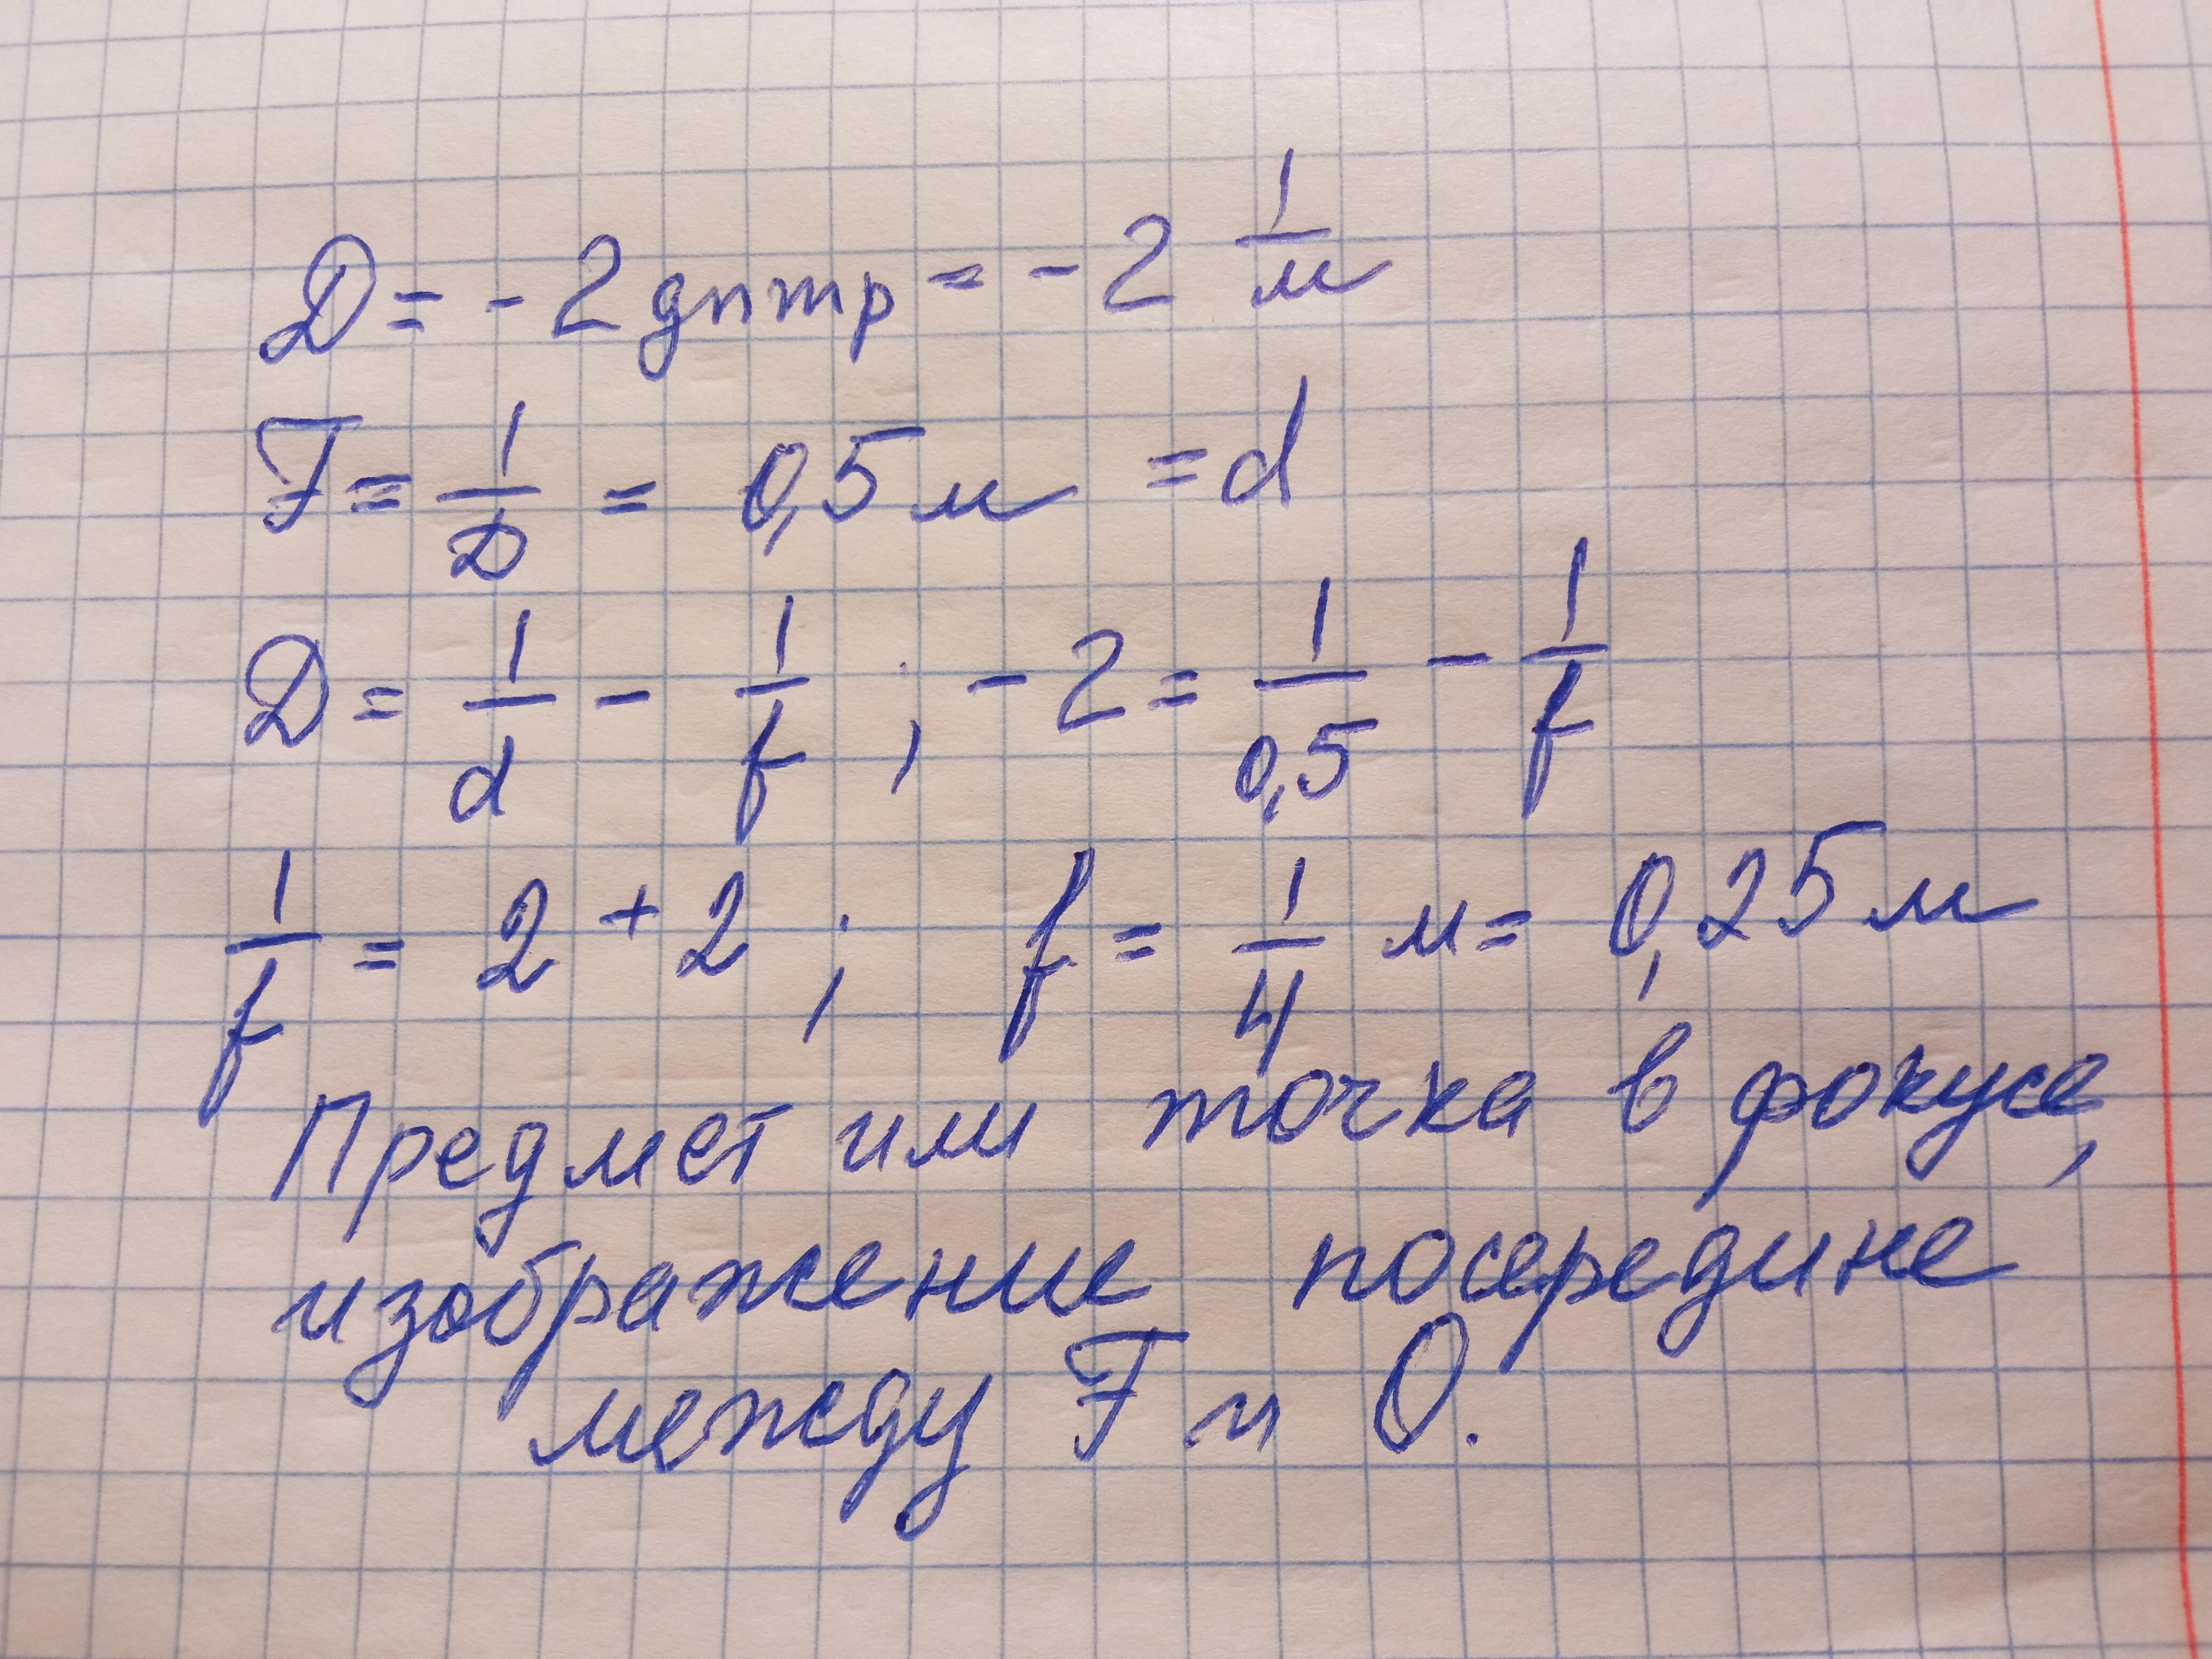 D = - 2 дптр = - 2 1/м
F = 1/D = 0,5 м = d
D = 1/d - 1/f ; - 2 = 1/0,5 - 1/f
1/f = 2 + 2 ; f = 1/4 м = 0,25 м
Предмет или точка в фокусе,
изображение посередине
между F и О.